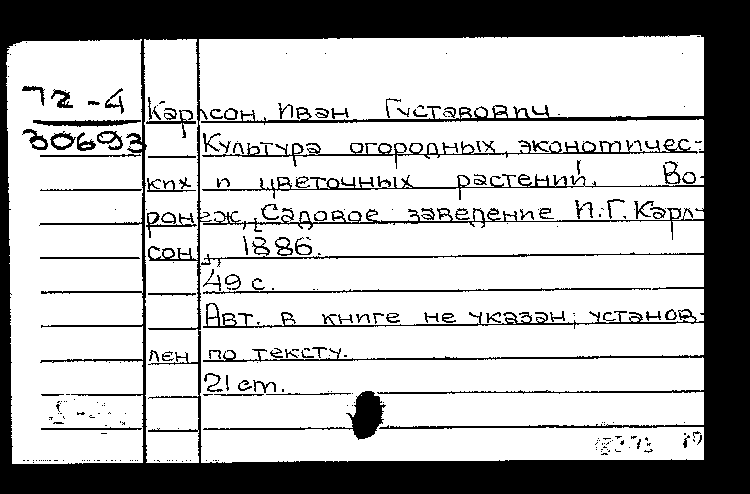 72-4
30693
Карлсон, Иван Густавович
Культура огородных, экономичес-
ких и цветочных растений. Во-
ронеж, "Садовое заведение И.Г. Карл-
сон", 1886.
49 с.
Авт. в книге не указан; установ-
лен по тексту.
21 cm.